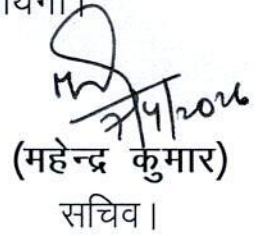 7/4/2026
(महेन्द्र कुमार)
सचिव।